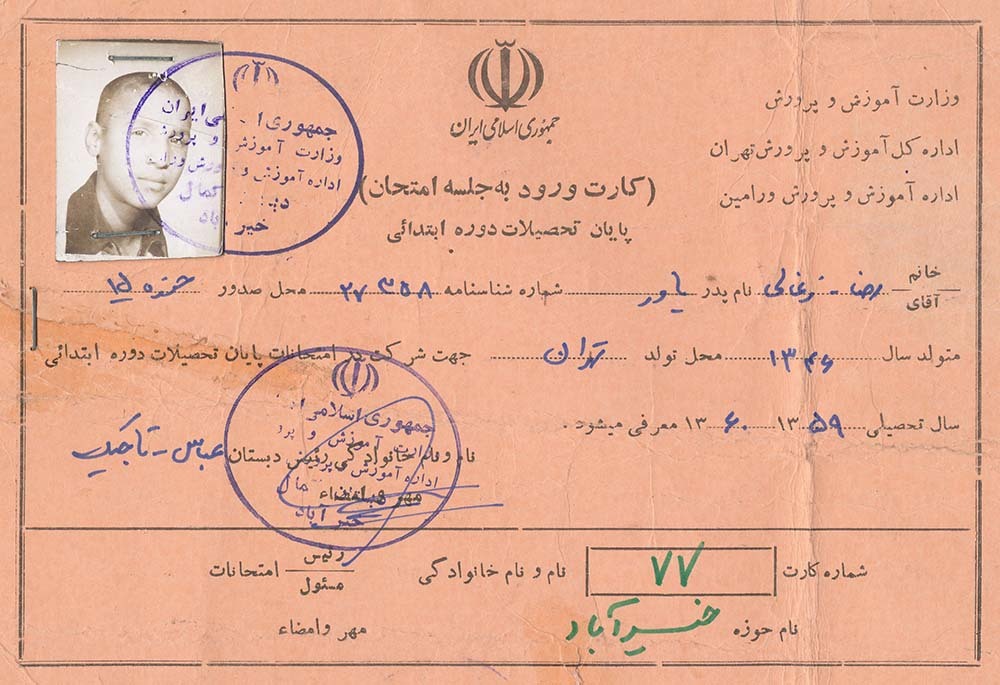 جمهوری اسلامی ایران
وزارت آموزش و پرورش
اداره کل آموزش و پرورش تهران
اداره آموزش و پرورش ورامین
(کارت ورود به جلسه امتحان)
پایان تحصیلات دوره ابتدائی
خانم آقای رضا - زغالی نام پدر یاور شماره شناسنامه ۲۷۳۵۸ محل صدور حوزه ۱۵
متولد سال ۱۳۴۶ محل تولد تهران جهت شرکت در امتحانات پایان تحصیلات دوره ابتدائی
سال تحصیلی ۱۳۵۹ ۱۳۶۰ معرفی میشود.
نام و نام خانوادگی رئیس دبستان عباس - تاجیک
مهر و امضاء
جمهوری اسلامی ایران
وزارت آموزش و پرورش
اداره آموزش و پرورش
خیرآباد
جمهوری اسلامی
وزارت آموزش و پرو
اداره آموزش
خیرآباد
شماره کارت ۷۷ نام و نام خانوادگی رئیس مسئول امتحانات
نام حوزه خیرآباد مهر و امضاء